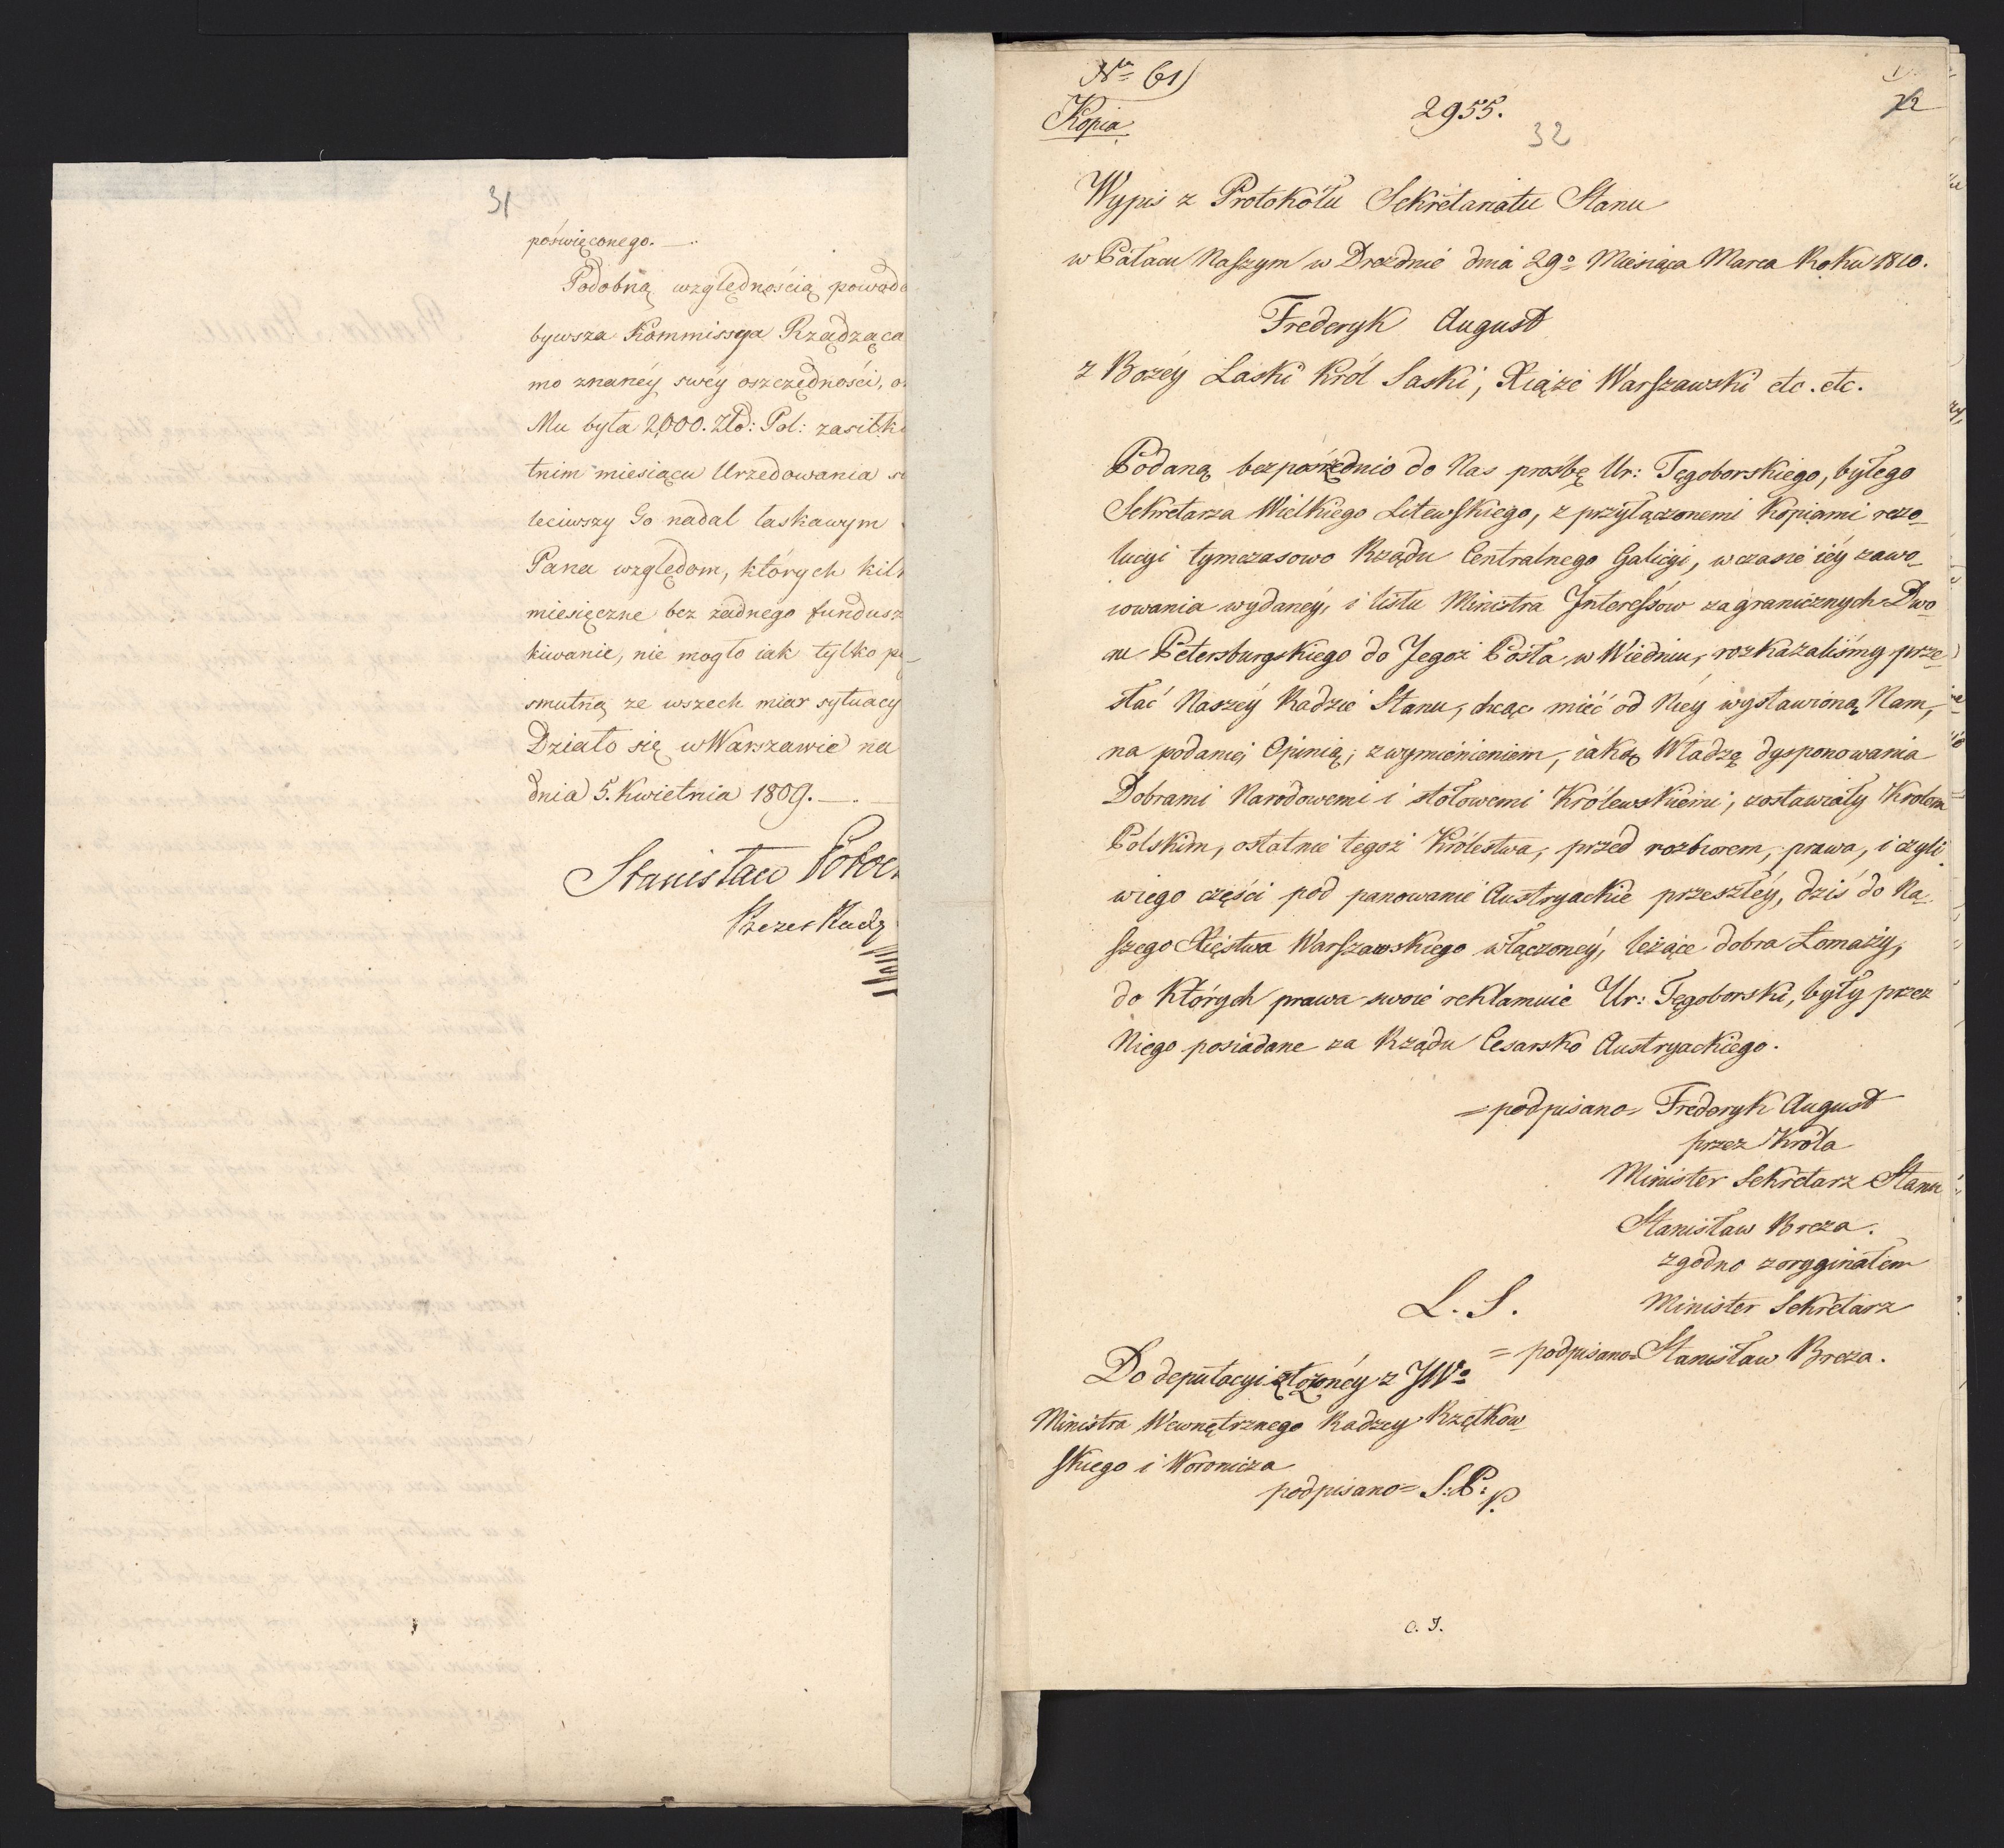 31
poświęconego. —
Podobną względnością powodo
bywsza Kommissya Rządząca
mo znanéy swéy oszczędności, o
Mu była 2,000. Złd: Pol: zasiłk
tnim miesiącu Urzędowania s
leciwszy Go nadal łaskawym
Pana względom, których kilk
miesięczne bez żadnego fundusz
kiwanie, nie mogło iak tylko po
smutną ze wszech miar sytuacy
Działo się w Warszawie na
dnia 5. Kwietnia 1809. —
Stanisław Potoc
Prezes Rady
No 61)
Kopia
2955.
32
Wypis z Protokółu Sekretariatu Stanu
w Pałacu Naszym w Dreźnie dnia 29o Miesiąca Marca Roku 1810.
Frederyk August
z Bożéy Łaski Król Saski, Xiąże Warszawski etc. etc.
Podaną bezpośrzednio do Nas prośbę Ur: Tęgoborskiego, byłego
Sekretarza Wielkiego Litewskiego, z przyłączonemi kopiami rezo-
lucyi tymczasowo Rządu Centralnego Galicyi, w czasie iéy zawo-
iowania wydanéy, i listu Ministra Interessów zagranicznych Dwo-
ru Petersburgskiego do Jegoż Posła w Wiedniu, rozkazaliśmy prze-
słać Naszéy Radzie Stanu, chcąc mieć od Niéy wystawioną Nam,
na podanie, Opinią, z wymienieniem, iaką Władzą dysponowania
Dobrami Narodowemi i stołowemi Królewskiemi, zostawiały Królom
Polskim, ostatnie tegoż Królestwa, przed rozbiorem, prawa, i czyli
w iego części pod panowanie Austryackie przeszłéy, dziś do Na-
szego Xięstwa Warszawskiego włączonéy, leżące dobra Łomazy,
do których prawa swoie reklamuie Ur: Tęgoborski, były przez
Niego posiadane za Rządu Cesarsko Austryackiego.
= podpisano = Frederyk August
przez Króla
Minister Sekretarz Stanu
Stanisław Breza.
zgodno z oryginałem
L. S.
Minister Sekretarz
= podpisano = Stanisław Breza.
Do deputacyi złożonéy z JWo
Ministra Wewnętrznego Radzcy Rzętkow-
skiego i Woronicza
podpisano = S. P. p.